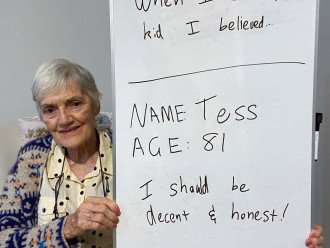 When I
kid I believed...
NAME: Tess
AGE: 81
I should be
decent & honest!